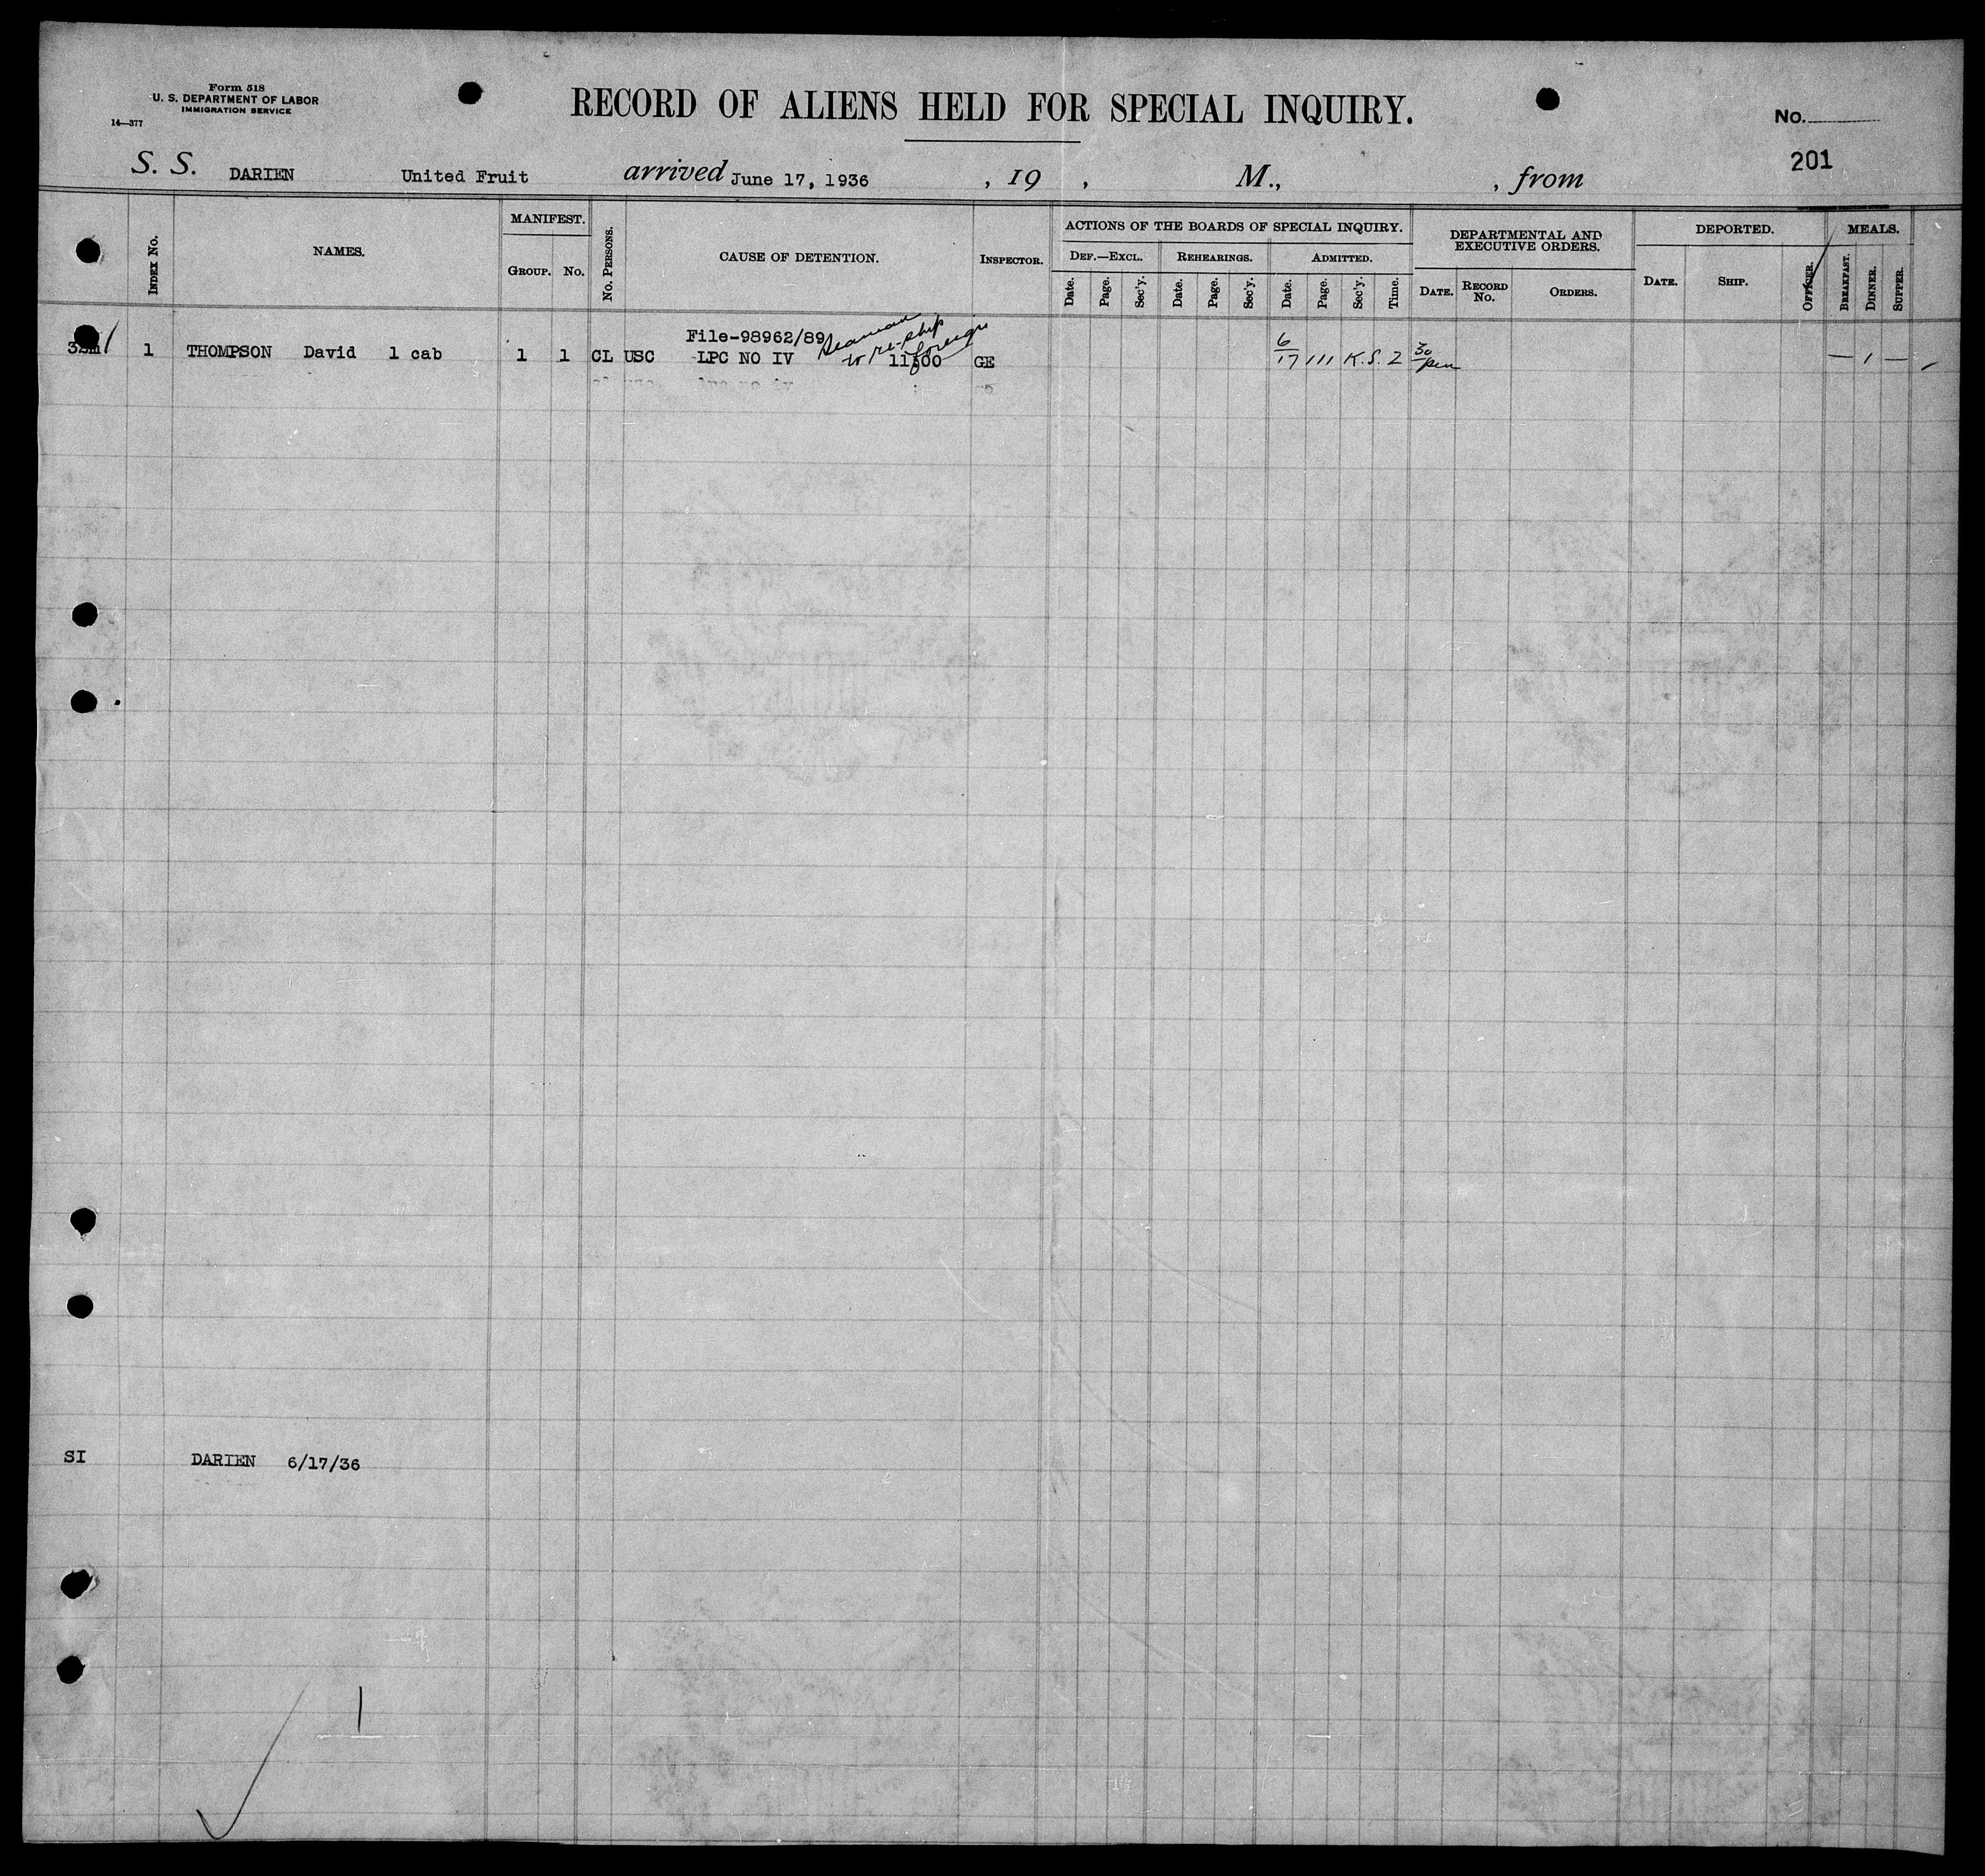 Form 518
U. S. DEPARTMENT OF LABOR
IMMIGRATION SERVICE
14—377
RECORD OF ALIENS HELD FOR SPECIAL INQUIRY.
No.
201
S. S. DARIEN United Fruit arrived June 17, 1936 , 19 , M., , from
INDEX No.
NAMES.
MANIFEST.
GROUP. No.
No. PERSONS.
CAUSE OF DETENTION.
INSPECTOR.
ACTIONS OF THE BOARDS OF SPECIAL INQUIRY.
DEF.—EXCL. REHEARINGS. ADMITTED.
Date. Page. Sec'y. Date. Page. Sec'y. Date. Page. Sec'y. Time.
DEPARTMENTAL AND
EXECUTIVE ORDERS.
DATE. RECORD No. ORDERS.
DEPORTED.
DATE. SHIP. OFFICER.
MEALS.
BREAKFAST. DINNER. SUPPER.
File-98962/89 Seaman
to re-ship
foreign
1 THOMPSON David 1 cab 1 1 CL USC LPC NO IV GE 6/17 111 K.S. 2 30 pm — 1 —
SI DARIEN 6/17/36
1